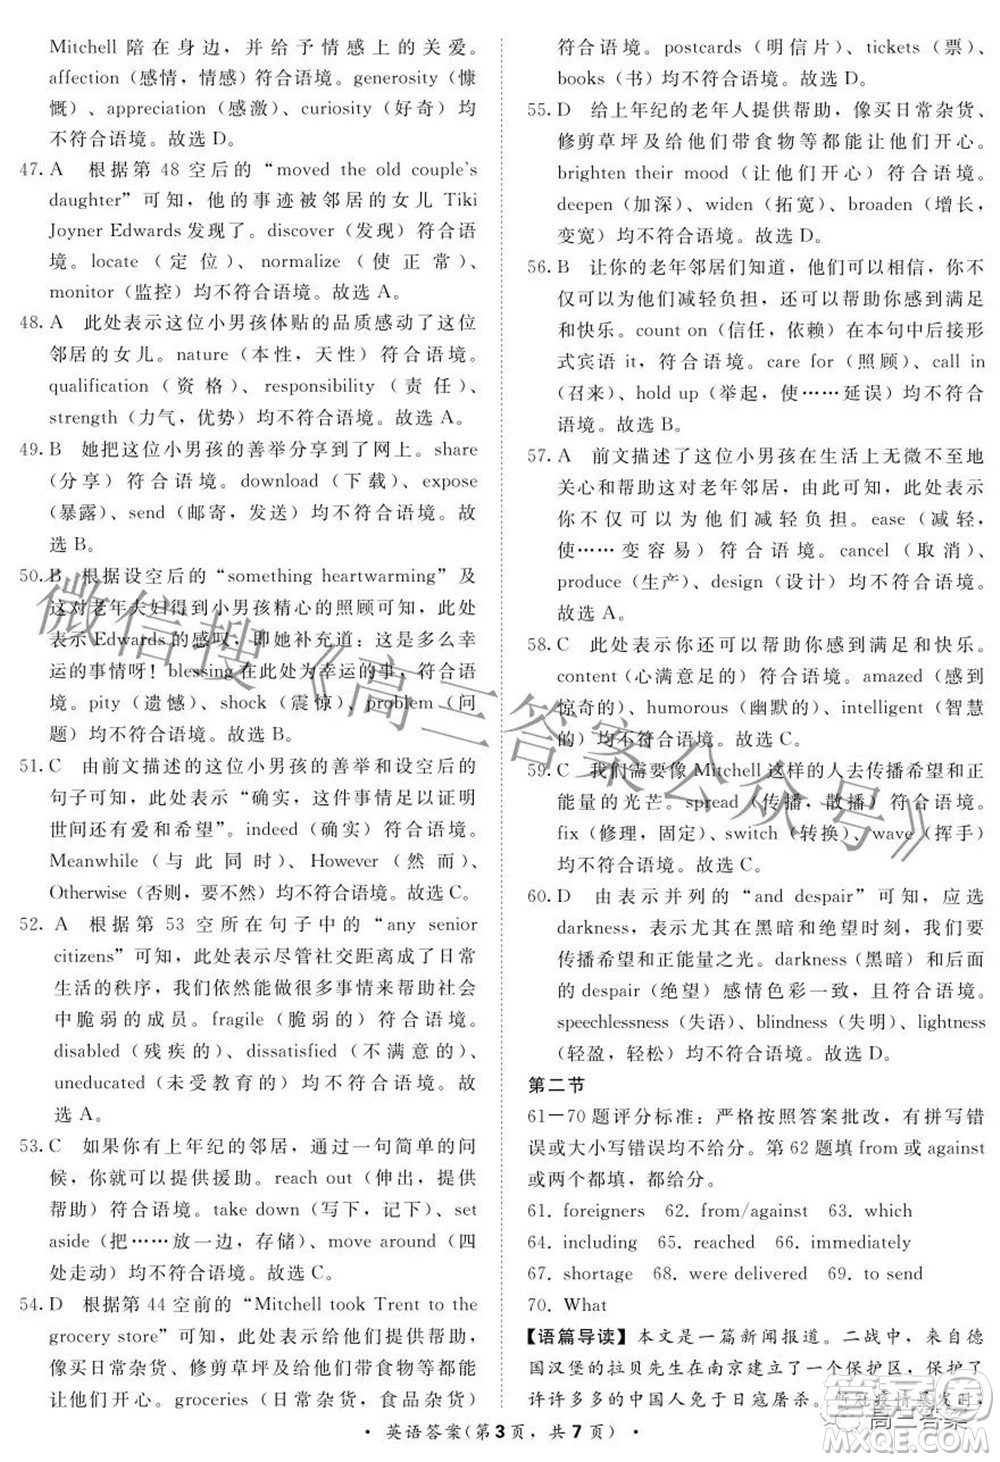 Mitchell 陪在身边，并给予情感上的关爱。
affection（感情，情感）符合语境。generosity（慷
慨）、appreciation（感激）、curiosity（好奇）均
不符合语境。故选 D。
47. A 根据第 48 空后的“moved the old couple's
daughter”可知，他的事迹被邻居的女儿 Tiki
Joyner Edwards 发现了。discover（发现）符合语
境。locate（定位）、normalize（使正常）、
monitor（监控）均不符合语境。故选 A。
48. A 此处表示这位小男孩体贴的品质感动了这位
邻居的女儿。nature（本性，天性）符合语境。
qualification（资格）、responsibility（责任）、
strength（力气，优势）均不符合语境。故选 A。
49. B 她把这位小男孩的善举分享到了网上。share
（分享）符合语境。download（下载）、expose
（暴露）、send（邮寄，发送）均不符合语境。故
选 B。
50. B 根据设空后的“something heartwarming”及
这对老年夫妇得到小男孩精心的照顾可知，此处
表示 Edwards 的感叹，即她补充道：这是多么幸
运的事情呀！blessing 在此处为幸运的事，符合语
境。pity（遗憾）、shock（震惊）、problem（问
题）均不符合语境。故选 B。
51. C 由前文描述的这位小男孩的善举和设空后的
句子可知，此处表示“确实，这件事情足以证明
世间还有爱和希望”。indeed（确实）符合语境。
Meanwhile（与此同时）、However（然而）、
Otherwise（否则，要不然）均不符合语境。故选 C。
52. A 根据第 53 空所在句子中的“any senior
citizens”可知，此处表示尽管社交距离扰乱了日常
生活的秩序，我们依然能做很多事情来帮助社会
中脆弱的成员。fragile（脆弱的）符合语境。
disabled（残疾的）、dissatisfied（不满意的）、
uneducated（未受教育的）均不符合语境。故
选 A。
53. C 如果你有上年纪的邻居，通过一句简单的问
候，就可以提供援助。reach out（伸出，提供
帮助）符合语境。take down（写下，记下）、set
aside（把……放一边，存储）、move around（四
处走动）均不符合语境。故选 C。
54. D 根据第 44 空前的“Mitchell took Trent to the
grocery store”可知，此处表示给他们提供帮助，
像买日常杂货、修剪草坪及给他们带食物等都会
让他们开心。groceries（日常杂货，食品杂货）
符合语境。postcards（明信片）、tickets（票）、
books（书）均不符合语境。故选 D。
55. D 给上年纪的老年人提供帮助，像买日常杂货、
修剪草坪及给他们带食物等都会让他们开心。
brighten their mood（让他们开心）符合语境。
deepen（加深）、widen（拓宽）、broaden（增长，
变宽）均不符合语境。故选 D。
56. B 让你的老年邻居们知道，他们可以相信，你不
仅可以为他们减轻负担，还可以帮你感到满足
和快乐。count on（信任，依赖）在本句中后接形
式宾语 it，符合语境。care for（照顾）、call in
（召来）、hold up（举起，使……延误）均不符合
语境。故选 B。
57. A 前文描述了这位小男孩在生活上无微不至地
关心和帮助这对老年邻居，此处表示
你不仅可以为他们减轻负担。ease（减轻，
使……变容易）符合语境。cancel（取消）、
produce（生产）、design（设计）均不符合语境。
故选 A。
58. C 此处表示你还可以帮助你感到满足和快乐。
content（心满意足的）符合语境。amazed（感到
惊奇的）、humorous（幽默的）、intelligent（智慧
的）均不符合语境。故选 C。
59. C 我们需要像 Mitchell 这样的人去传播希望和正
能量的光芒。spread（传播，散播）符合语境。
fix（修理，固定）、switch（转换）、wave（挥手）
均不符合语境。故选 C。
60. D 由表示并列的“and despair”可知，应选
darkness，表示尤其在黑暗和绝望时刻，我们要
传播希望和正能量之光。darkness（黑暗）与后面
的 despair（绝望）感情色彩一致，符合语境。
speechlessness（失语）、blindness（失明）、lightness
（轻盈，轻松）均不符合语境。故选 D。
第二节
61—70 题评分标准：严格按照答案批改，有拼写错
误或大小写错误均不给分。第 62 题填 from 或 against
或两个都填，都给分。
61. foreigners 62. from/against 63. which
64. including 65. reached 66. immediately
67. shortage 68. were delivered 69. to send
70. What
【语篇导读】本文是一篇新闻报道。二战中，来自德
国汉堡的拉贝先生在南京建立了一个保护区，保护了
许许多多的中国人免于日寇屠杀。新冠疫情暴发时
· 英语答案（第 3 页，共 7 页）·
微信搜《高三答案公众号》
高三答案